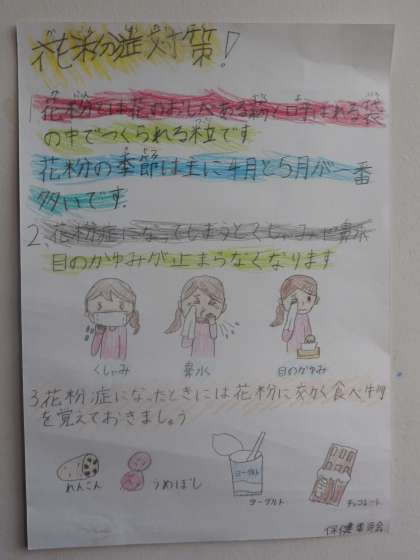 花粉症対策!
1.花粉とは花のおしべある粉と呼ばれる袋
の中でつくられる粒です
花粉の季節は主に4月と5月が一番
多いです。
2.花粉症になってしまうとくしゃみに鼻水
目のかゆみが止まらなくなります
くしゃみ
鼻水
目のかゆみ
3.花粉症になったときには花粉に効く食べ物
を覚えておきましょう
れんこん
うめぼし
ヨーグルト
ヨーグルト
チョコレート
保健委員会